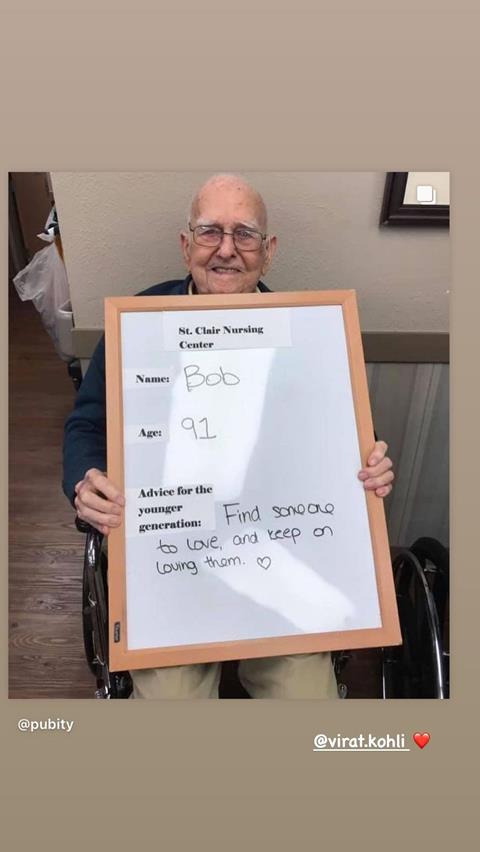 St. Clair Nursing
Center
Name: Bob
Age: 91
Advice for the
younger
generation: Find someone
to love, and keep on
loving them. ♡
@pubity
@virat.kohli ❤️